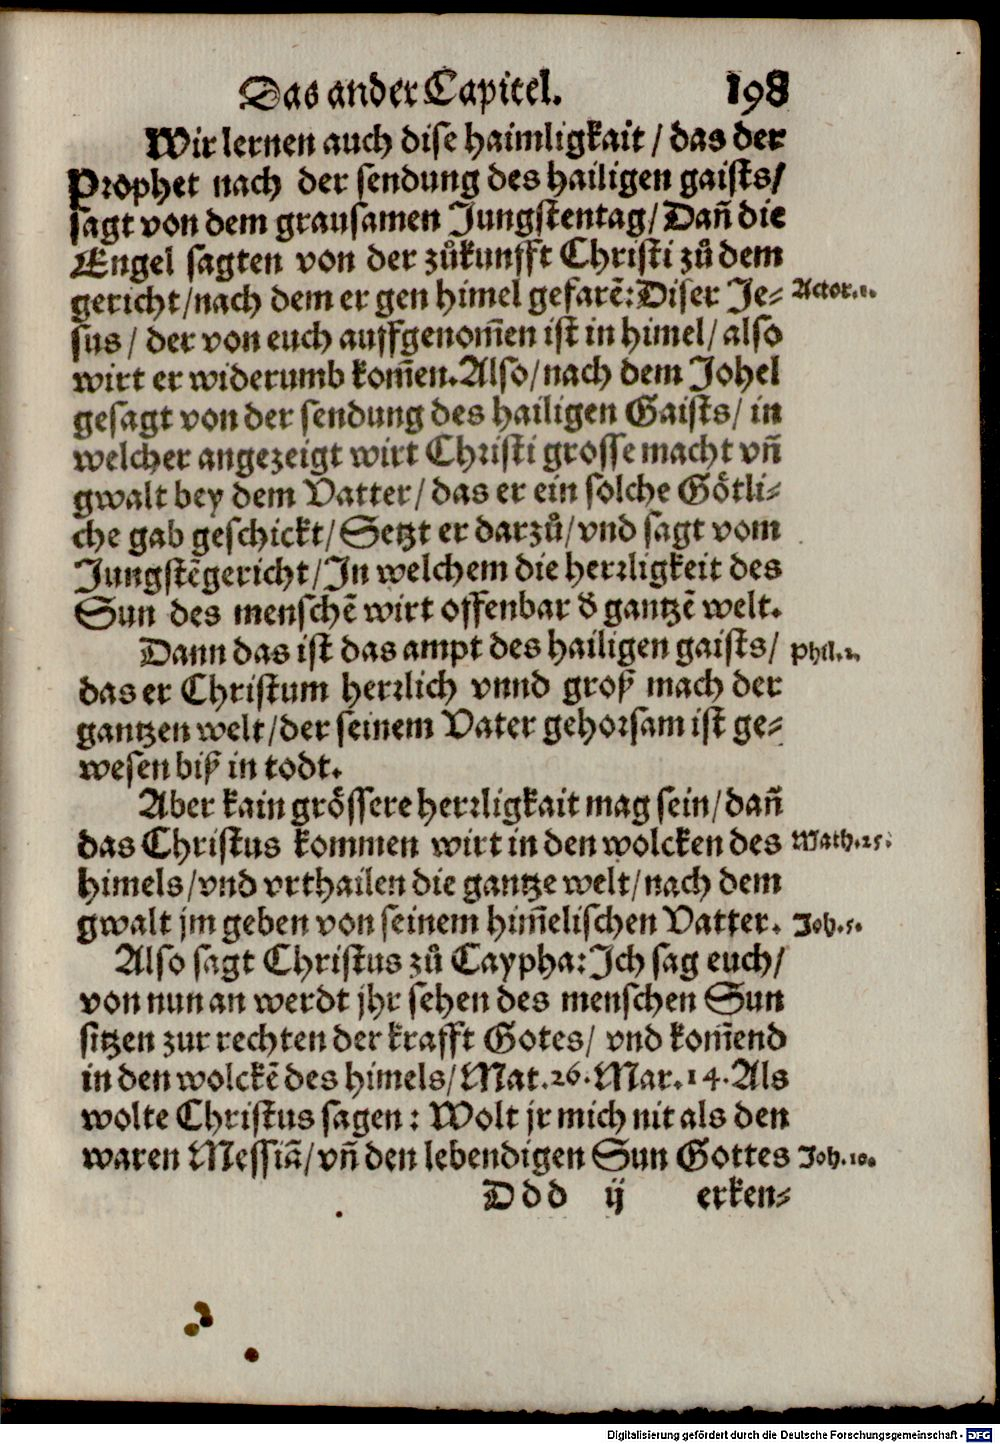 Das ander Capitel. 198
Wir lernen auch dise haimligkait / das der
Prophet nach der sendung des hailigen gaists/
sagt von dem grausamen Jungstentag/ Dañ die
Engel sagten von der zůkunfft Christi zů dem
gericht/nach dem er gen himel gefarẽ: Diser Je⸗ Actor.1.
sus / der von euch auffgenom̃en ist in himel/ also
wirt er widerumb kom̃en. Also/nach dem Johel
gesagt von der sendung des hailigen Gaists/ in
welcher angezeigt wirt Christi grosse macht vñ
gwalt bey dem Vatter/ das er ein solche Götli⸗
che gab geschickt/ Setzt er darzů/ vnd sagt vom
Jungstẽgericht/ In welchem die herꝛligkeit des
Sun des menschẽ wirt offenbar đ gantzẽ welt.
Dann das ist das ampt des hailigen gaists/ Phil.2.
das er Christum herꝛlich vnnd groß mach der
gantzen welt/der seinem Vater gehoꝛsam ist ge⸗
wesen biß in todt.
Aber kain grössere herꝛligkait mag sein/ dañ
das Christus kommen wirt in den wolcken des Math.25.
himels/vnd vrthailen die gantze welt/ nach dem
gwalt jm geben von seinem him̃elischen Vatter. Joh.5.
Also sagt Christus zů Caypha: Ich sag euch/
von nun an werdt jhr sehen des menschen Sun
sitzen zur rechten der krafft Gotes/ vnd kom̃end
in den wolckẽ des himels/ Mat.26. Mar.14. Als
wolte Christus sagen: Wolt jr mich nit als den
waren Messiã/ vñ den lebendigen Sun Gottes Joh.10.
Ddd ij erken⸗
Digitalisierung gefördert durch die Deutsche Forschungsgemeinschaft - DFG